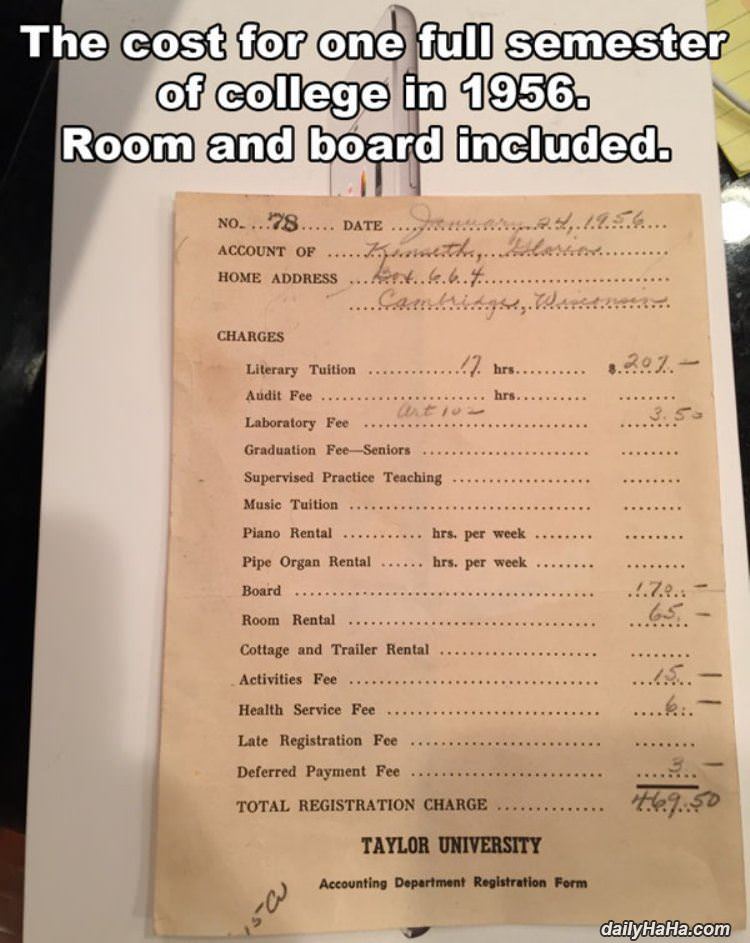 The cost for one full semester
of college in 1956.
Room and board included.
NO. ...78..... DATE ....January 24, 1956....
ACCOUNT OF .....Kenneth, Gloria..........
HOME ADDRESS ...Box 664......................
....Cambridge, Wisconsin
CHARGES
Literary Tuition .............17 hrs.......... $ 207.—
Audit Fee ............................ hrs.......... ........
Laboratory Fee ......Art 10—...................... ....3.50
Graduation Fee—Seniors ........................ ........
Supervised Practice Teaching .................... ........
Music Tuition .................................... ........
Piano Rental ........... hrs. per week ........ ........
Pipe Organ Rental ...... hrs. per week ........ ........
Board ............................................ .170..—
Room Rental .................................... 65.—
Cottage and Trailer Rental ...................... ........
Activities Fee .................................. ...15..—
Health Service Fee .............................. ....6..—
Late Registration Fee ........................... ........
Deferred Payment Fee ........................... ....3..—
TOTAL REGISTRATION CHARGE ............. 469.50
TAYLOR UNIVERSITY
Accounting Department Registration Form
dailyHaHa.com